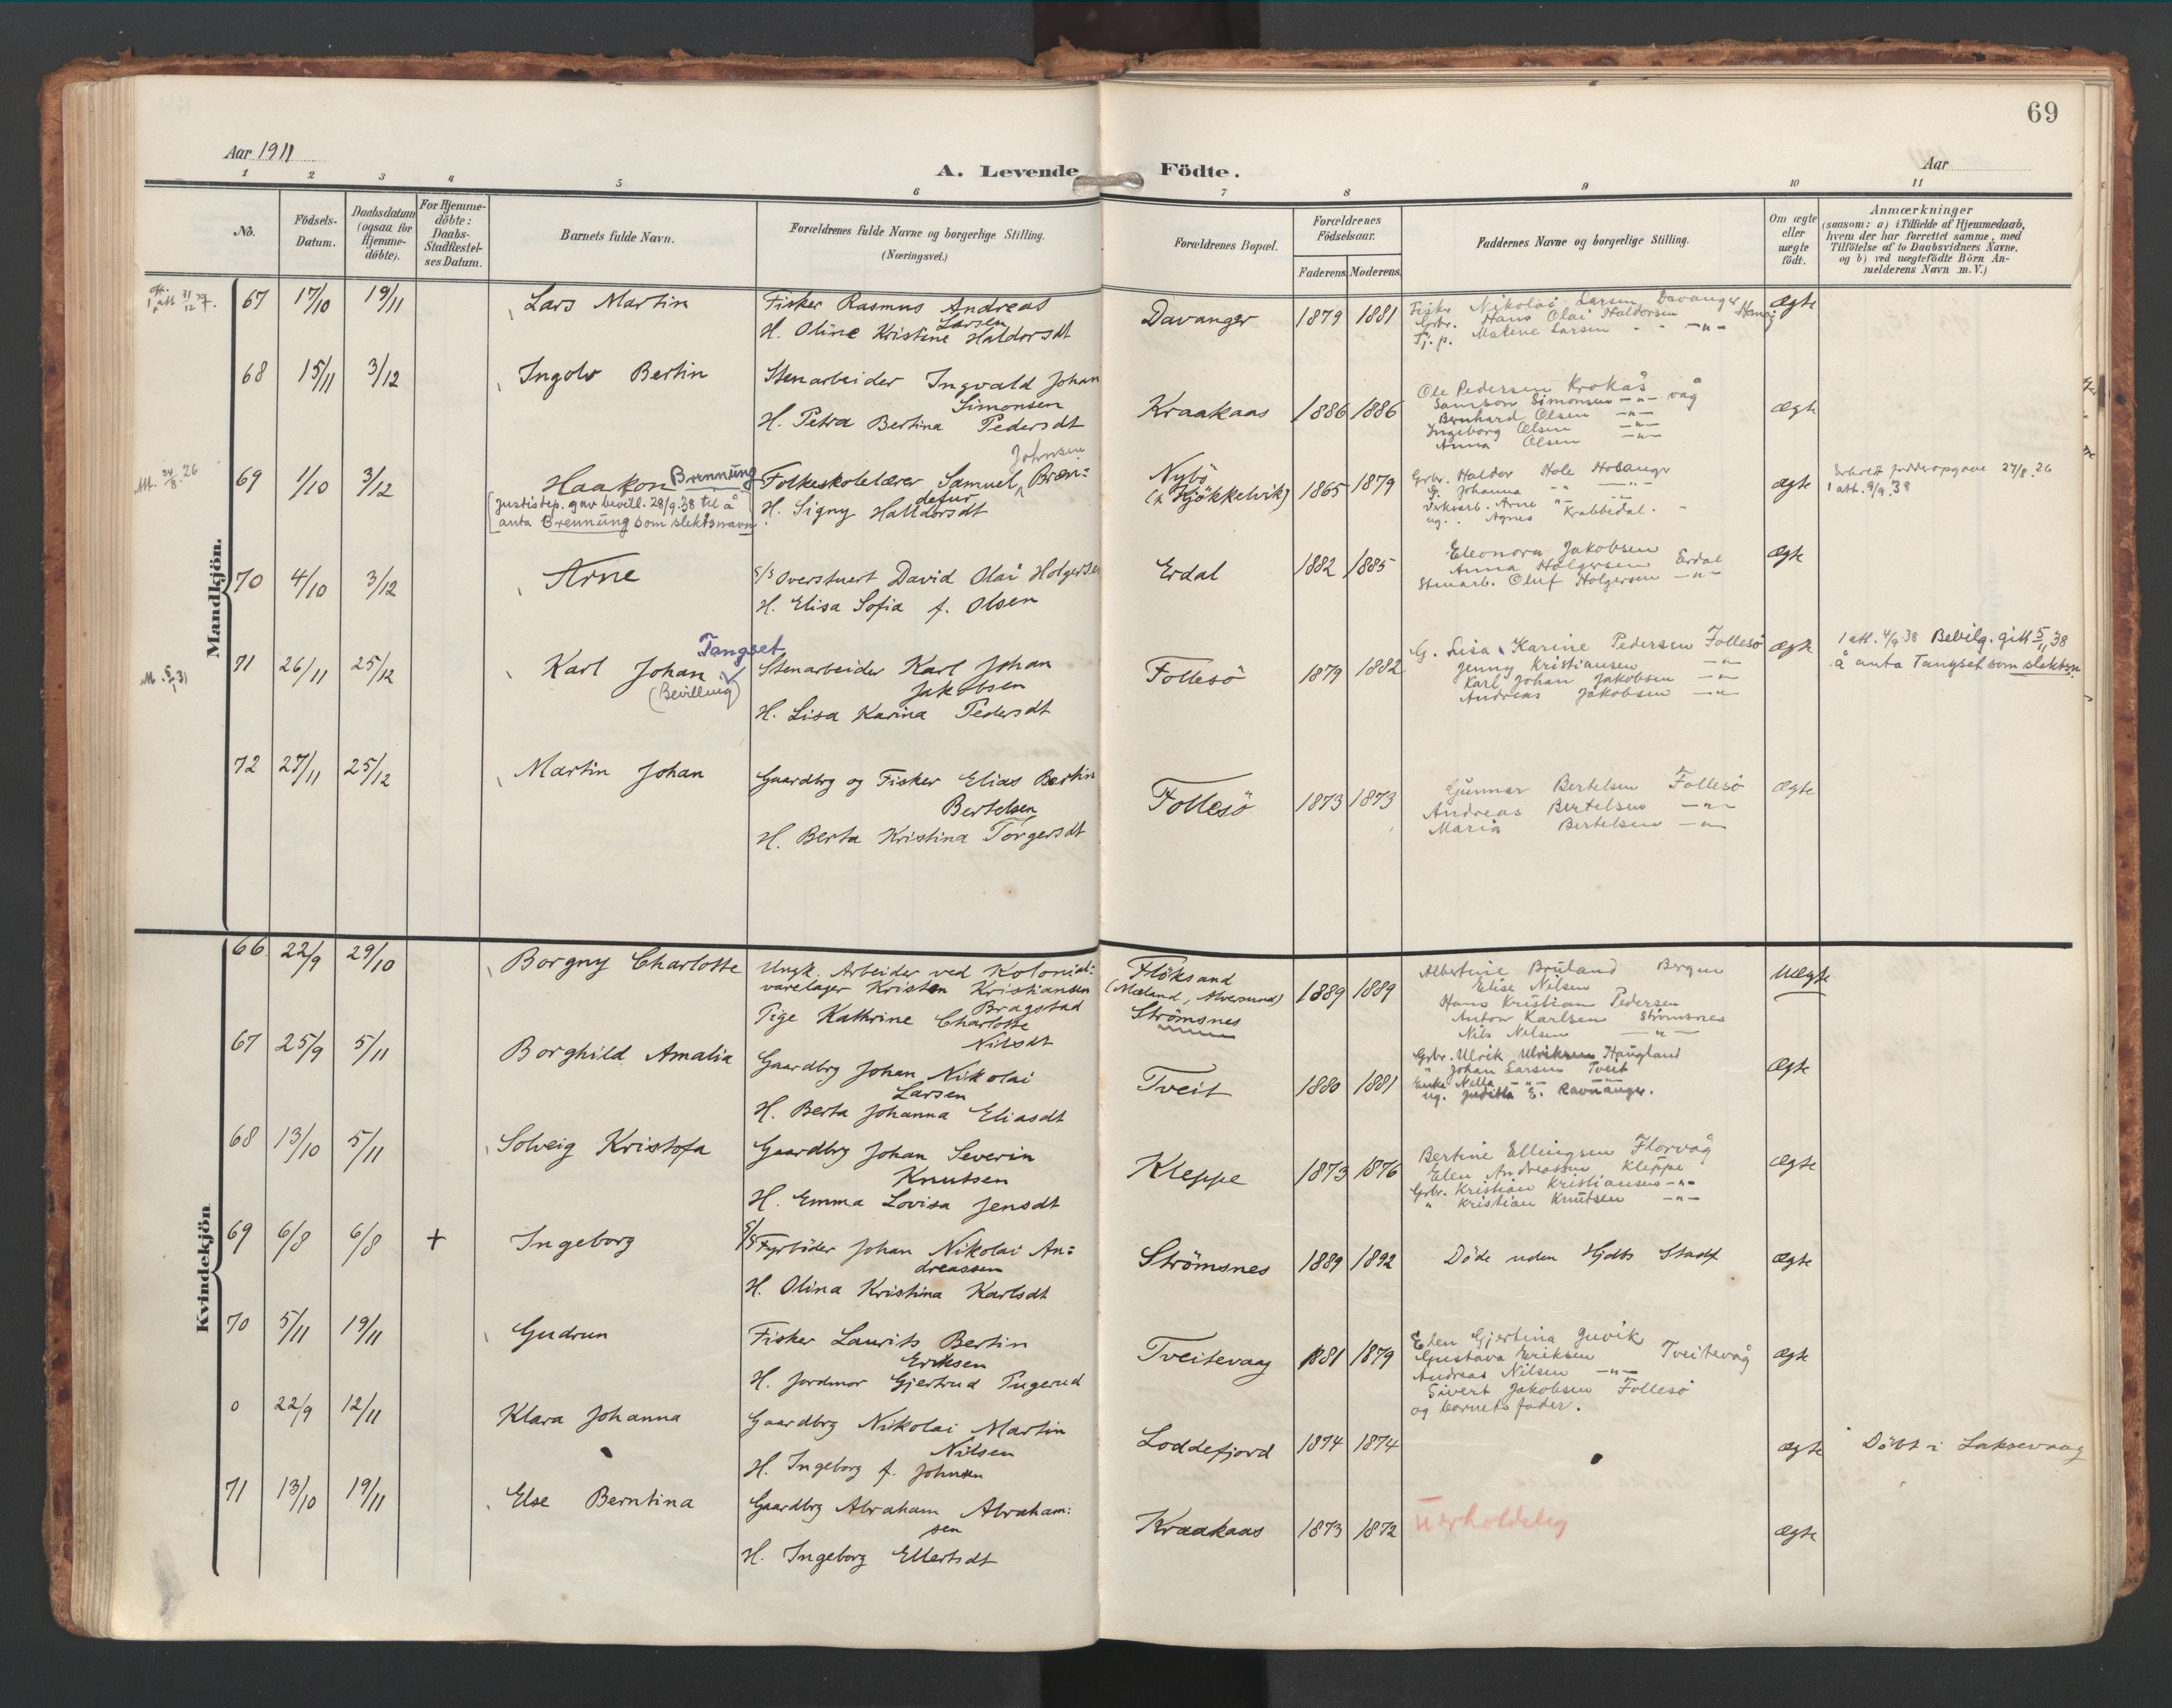 69
Aar 1911
Aar
A. Levende Födte.
1 2 3 4 5 6 7 8 9 10 11
No.
Födsels-
Datum.
Daabsdatum
(ogsaa for
Hjemme-
döbte).
For Hjemme-
döbte:
Daabs-
Stadfæstel-
ses Datum.
Barnets fulde Navn.
Forældrenes fulde Navne og borgerlige Stilling.
(Næringsvei.)
Forældrenes Bopæl.
Forældrenes
Födselsaar.
Faderens Moderens
Faddernes Navne og borgerlige Stilling.
Om ægte
eller
uægte
födt.
Anmærkninger
(saasom: a) i Tilfælde af Hjemmedaab,
hvem der har forrettet samme, med
Tilföielse af to Daabsvidners Navne,
og b) ved uægtefödte Börn An-
melderens Navn m. V.)
Mandkjön.
67 17/10 19/11 Lars Martin
Fisker Rasmus Andreas
Larsen
H. Oline Kristine Haldorsdt
Davanger 1879 1881
Fisker Nikolai Larsen Davanger
Grbr. Hans Olai Haldorsen
Tj. p. Matene Larsen -"-
Ægte
68 15/11 3/12 Ingolv Bertin
Stenarbeider Ingvald Johan
Simonsen
H. Petra Bertina Pedersdt
Kraakaas 1886 1886
Ole Pedersen Krokås
Samson Simonsen -"- våg
Bernhard Olsen -"-
Ingeborg Olsen -"-
Anna Olsen -"-
ægte
Att. 24/8 26
69 1/10 3/12 Haakon Brennüng
[Justisdep. gav bevill. 28/9.38 til å
anta Brennüng som slektsnavn
Johnsen
Folkeskolelærer Samuel Bren=
H. Signy Halldorsdt
Nybö
(h Kjökkelvik) 1865 1879
Grbr. Haldor Hole Hosanger
G. Johanna " -"-
Arne " -"-
ug. Agnes Krabbedal.
ægte
27/8.26
1 att. 9/9.38
70 4/10 3/12 Arne
s/s Overstuert David Olai Holgersen
H. Elisa Sofia f. Olsen
Erdal 1882 1885
Eleonora Jakobsen
Anna Holgersen Erdal
Stenarb. Oluf Holgersen -"-
Ægte
71 26/11 25/12 Karl Johan Tangset
(Bevilling)
Stenarbeider Karl Johan
Jakobsen
H. Lisa Karina Pedersdt
Follesö 1879 1882
G. Lisa Karine Pedersen Follesö
Jenny Kristiansen -"-
Karl Johan Jakobsen -"-
Andreas Jakobsen -"-
ægte
1 att. 4/9 38 Bevilg. gitt 5/11 38
å anta Tangset som slektsn.
72 27/11 25/12 Martin Johan
Gaardbrg og Fisker Elias Bertin
Bertelsen
H. Berta Kristina Torgersdt
Follesö 1873 1873
Gunnar Bertelsen Follesö
Andreas Bertelsen -"-
Maria Bertelsen -"-
ægte
Kvindekjön
66 22/9 29/10 Borgny Charlotte
Ungk. Arbeider ved Kolonial=
varelager Kristen Kristiansen
Bragstad
Pige Kathrine Charlotte
Nilsdt
Flöksand
(Mæland, Alversund)
Strömsnes
1889 1889
Albertine Brüland Bergen
Elise Nilsen
Hans Kristian Pedersen
Anton Karlsen Strömsnes
Nils Nilsen -"-
Uægte
67 25/9 5/11 Borghild Amalia
Gaardbrg Johan Nikolai
Larsen
H. Berta Johanna Eliasdt
Tveit 1880 1881
Grbr. Ulrik Ulriksen Haugland
" Johan Larsen Tveit
Enke Nilla -"- -"-
ug. Juditha E. Ravnanger.
Ægte
68 13/10 5/11 Solveig Kristofa
Gaardbrg Johan Severin
Knutsen
H. Emma Lovisa Jensdt
Kleppe 1873 1876
Bertine Ellingsen Florvåg
Elen Andreassen Kleppe
Grbr. Kristian Kristiansen -"-
" Kristian Knutsen -"-
Ægte
69 6/8 6/8 + Ingeborg
s/s Fyrböder Johan Nikolai An=
dreassen
H. Olina Kristina Karlsdt
Strömsnes 1889 1892
Döde uden Hjdbs Stadf
Ægte
70 5/11 19/11 Gudrun
Fisker Laurits Bertin
Eriksen
H. Jordmor Gjertrud Pugerud
Tveitevaag 1881 1879
Elen Gjertina Juvik
Gustava Eriksen Tveitevåg
Andreas Nilsen -"-
Sivert Jakobsen Follesö
og barnets fader.
Ægte
0 22/9 12/11 Klara Johanna
Gaardbrg Nikolai Martin
Nilsen
H. Ingeborg f. Johnsen
Loddefjord 1874 1874
ægte
Döbt i Laksevaag
71 13/10 19/11 Else Berntina
Gaardbrg Abraham Abraham=
sen
H. Ingeborg Ellertsdt
Kraakaas 1873 1872
uerholdelig
Ægte